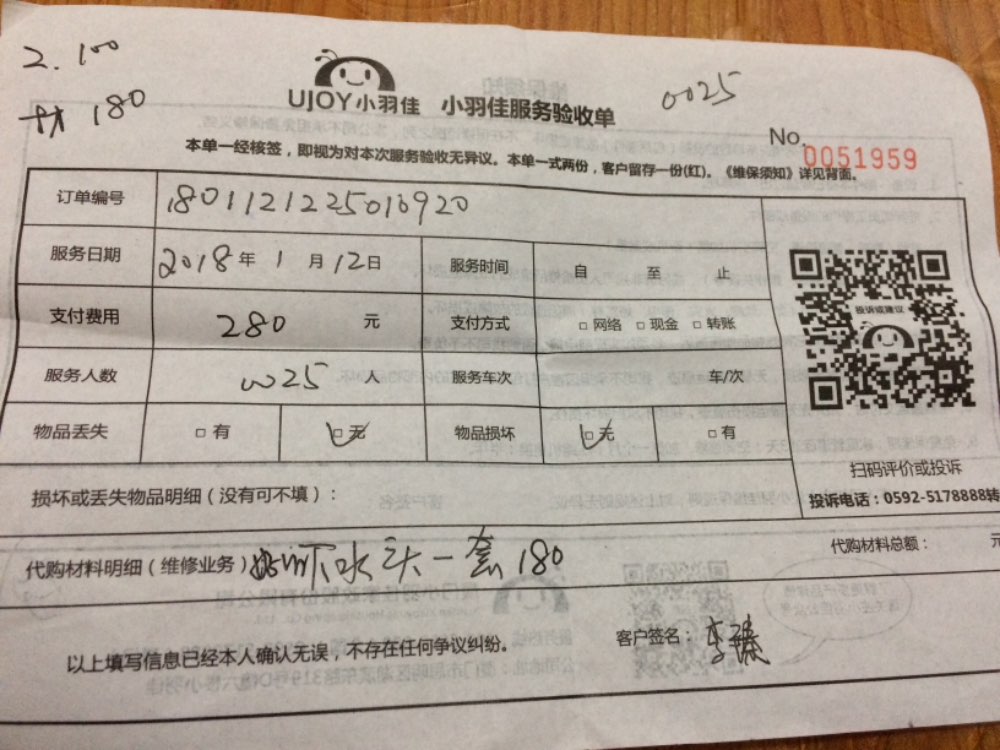 2. 100
材 180
UJOY小羽佳 小羽佳服务验收单
0025
No. 0051959
本单一经核签，即视为对本次服务验收无异议。本单一式两份，客户留存一份(红)。《维保须知》详见背面。
订单编号 1801121225010920
服务日期 2018年 1 月 12日 服务时间 自 至 止
支付费用 280 元 支付方式 □ 网络 □ 现金 □ 转账
服务人数 0025 人 服务车次 车/次
物品丢失 □ 有 □ 无 物品损坏 □ 无 □ 有
投诉或建议
扫码评价或投诉
投诉电话：0592-5178888转
损坏或丢失物品明细（没有可不填）：
代购材料明细（维修业务） 下水头一套 180
代购材料总额： 元
以上填写信息已经本人确认无误，不存在任何争议纠纷。
客户签名： 李